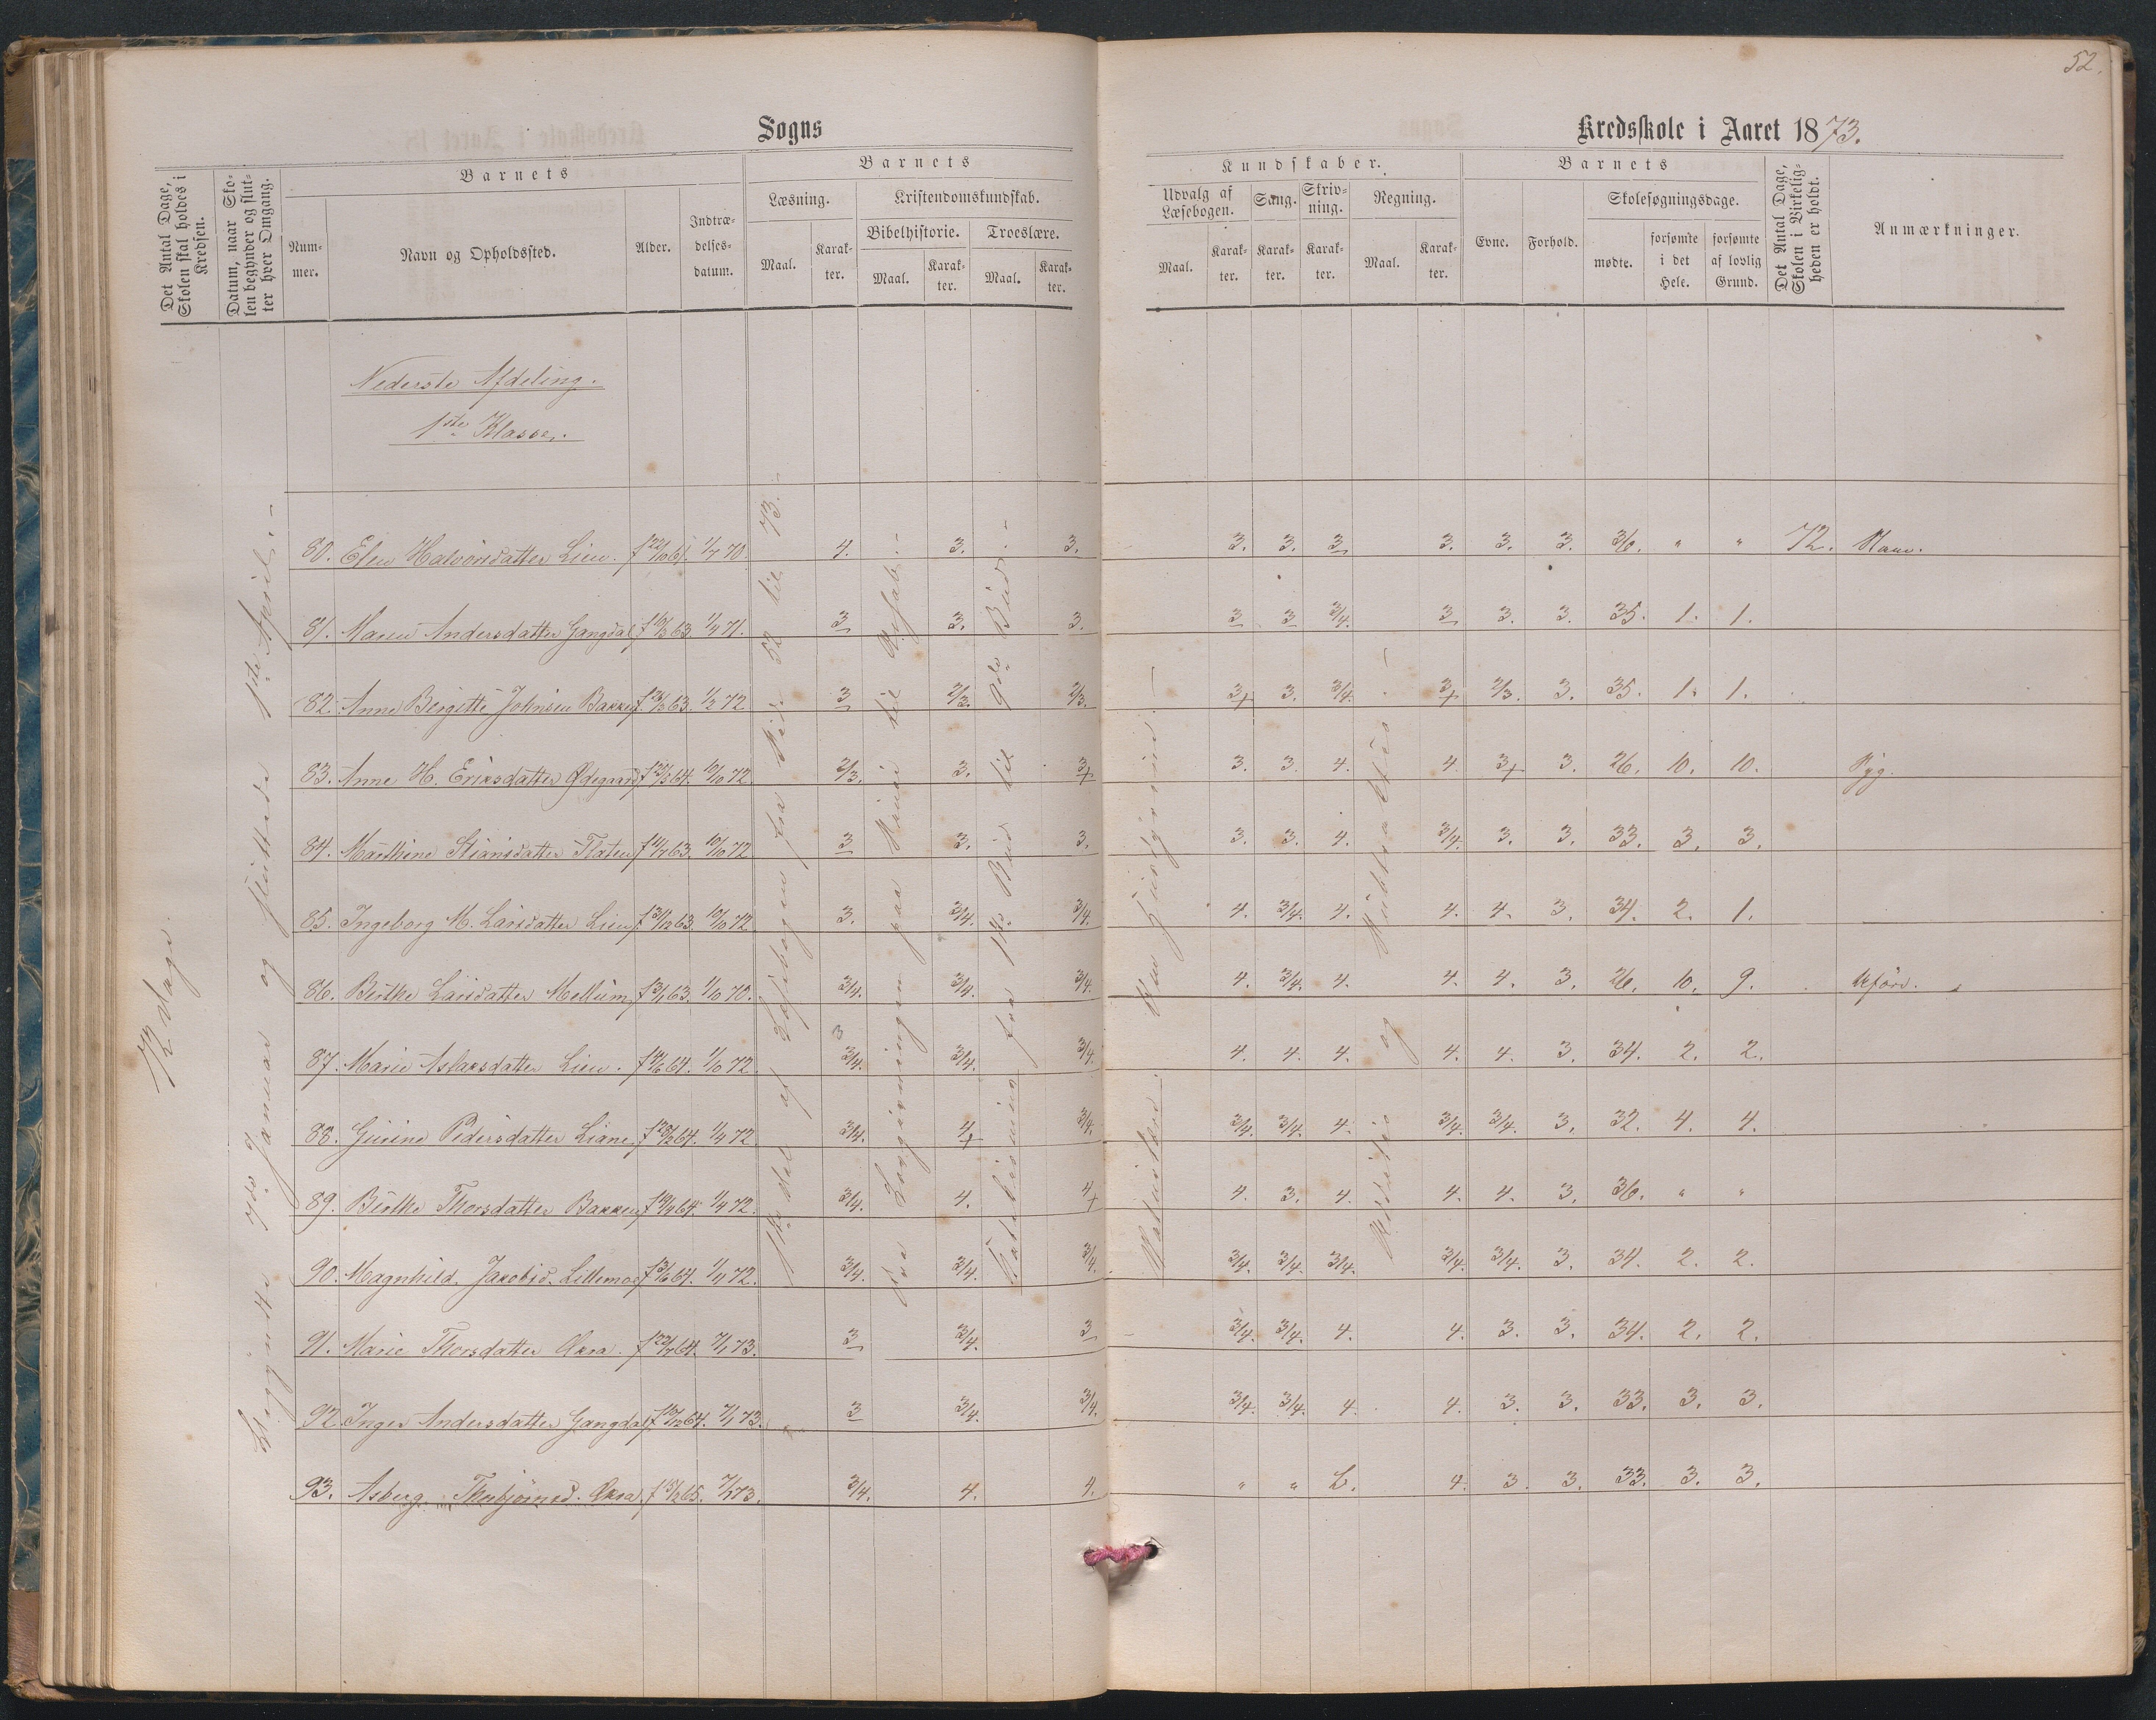 52.
Sogns
Kredsskole i Aaret 1873.
Det Antal Dage, Skolen skal holdes i Kredsen.
Datum, naar Skolen begynder og slutter hver Omgang.
Barnets
Nummer.
Navn og Opholdssted.
Alder.
Indtrædelses-datum.
Barnets
Læsning.
Maal.
Karakter.
Kristendomskundskab.
Bibelhistorie.
Maal.
Karakter.
Troeslære.
Maal.
Karakter.
Kundskaber.
Udvalg af Læsebogen.
Maal.
Karakter.
Sang.
Karakter.
Skrivning.
Karakter.
Regning.
Maal.
Karakter.
Barnets
Evne.
Forhold.
Skolesøgningsdage.
mødte.
forsømte i det Hele.
forsømte af lovlig Grund.
Det Antal Dage, Skolen i Virkeligheden er holdt.
Anmærkninger.
Nederste Afdeling.
1ste Klasse.
72 dage
Begyndte 7de Januar og sluttede 1ste April.
1ste Del af Læsebogen fra Side 52 til 73.
Fra Lovgivningen paa Sinai til
Katekismus fra 1ste Bud til 9de Bud.
og
80. Elen Halvorsdatter Lien. f 22/10 61. 1/7 70. 4. 3. 3. 3. 3. 3 3. 3. 3. 36. " " 72.
81. Maren Andersdatter Gangdal 63 71. 3 3. 3. 3 3 3/4. 3 3. 3. 35. 1. 1.
82. Anne Bergitte Johnsen Bakken 63. 72 3 2/3. 2/3. 3+ 3. 3/4. 3+ 2/3. 3. 35. 1. 1.
83. Anne H. Eriksdatter Ødegaard 64. 10/10 72. 2/3. 3. 3+ 3. 3. 4. 4. 3+ 3. 26. 10. 10. Syg.
84. Marthine Stiansdatter 63. 10/10 72 3 3. 3. 3. 3. 4. 3/4. 3. 3. 33. 3. 3.
85. Ingeborg M. Larsdatter Lien 63. 10/10 72 3. 3/4. 3/4. 4. 3/4. 4. 4. 4. 3. 34. 2. 1.
86. Berthe Larsdatter Mellum 63. 1/10 70. 3/4. 3/4. 3/4. 4. 3/4. 4. 4. 4. 3. 26. 10. 9.
87. Marie Aslaksdatter Lien. 64. 1/10 72. 3/4. 3/4. 3/4. 4. 4. 4. 4. 4. 3. 34. 2. 2.
88. Gurine Pedersdatter Liane 64. 72. 3/4. 4+ 3/4. 3/4. 3/4. 4. 3/4. 3/4. 3. 32. 4. 4.
89. Berthe Thorsdatter Bakken 64. 72. 3/4. 4. 4+ 4. 3. 4. 4. 4. 3. 36. " "
90. Magnhild Jakobsd. Lillemo 64. 72. 3/4. 3/4. 3/4. 3/4. 3/4. 3/4. 3/4. 3/4. 3. 34. 2. 2.
91. Marie Thorsdatter Akra. 64. 7/1 73. 3 3/4. 3 3/4. 3/4. 4. 4. 3. 3. 34. 2. 2.
92. Inger Andersdatter Gangdal 64. 7/1 73. 3 3/4. 3/4. 3/4. 3/4. 4. 4. 3. 3. 33. 3. 3.
93. Asberg Thorbjørnsd. Akra. 65. 7/1 73. 3/4. 4. 4. " " 4. 3. 3. 33. 3. 3.